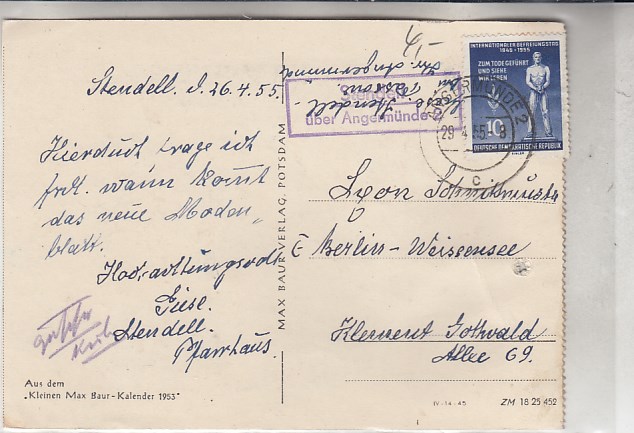 Stendell, d. 26.4.55.
Hierdurch frage ich
frdl. wann kommt
das neue Moden-
blatt.
Hochachtungsvoll
Giese.
Stendell.
Pfarrhaus.
Aus dem
„Kleinen Max Baur-Kalender 1953"
MAX BAUR VERLAG, POTSDAM
4,-
Stendell
über Angermünde 2
INTERNATIONALER BEFREIUNGSTAG
1945-1955
ZUM TODE GEFÜHRT
UND SIEHE
WIR LEBEN
10
DEUTSCHE DEMOKRATISCHE REPUBLIK
ANGERMÜNDE 2
29.4.55
c
Lyon
Berlin-Weissensee
Klement Gottwald
Allee 69.
IV-14-45
ZM 18 25 452